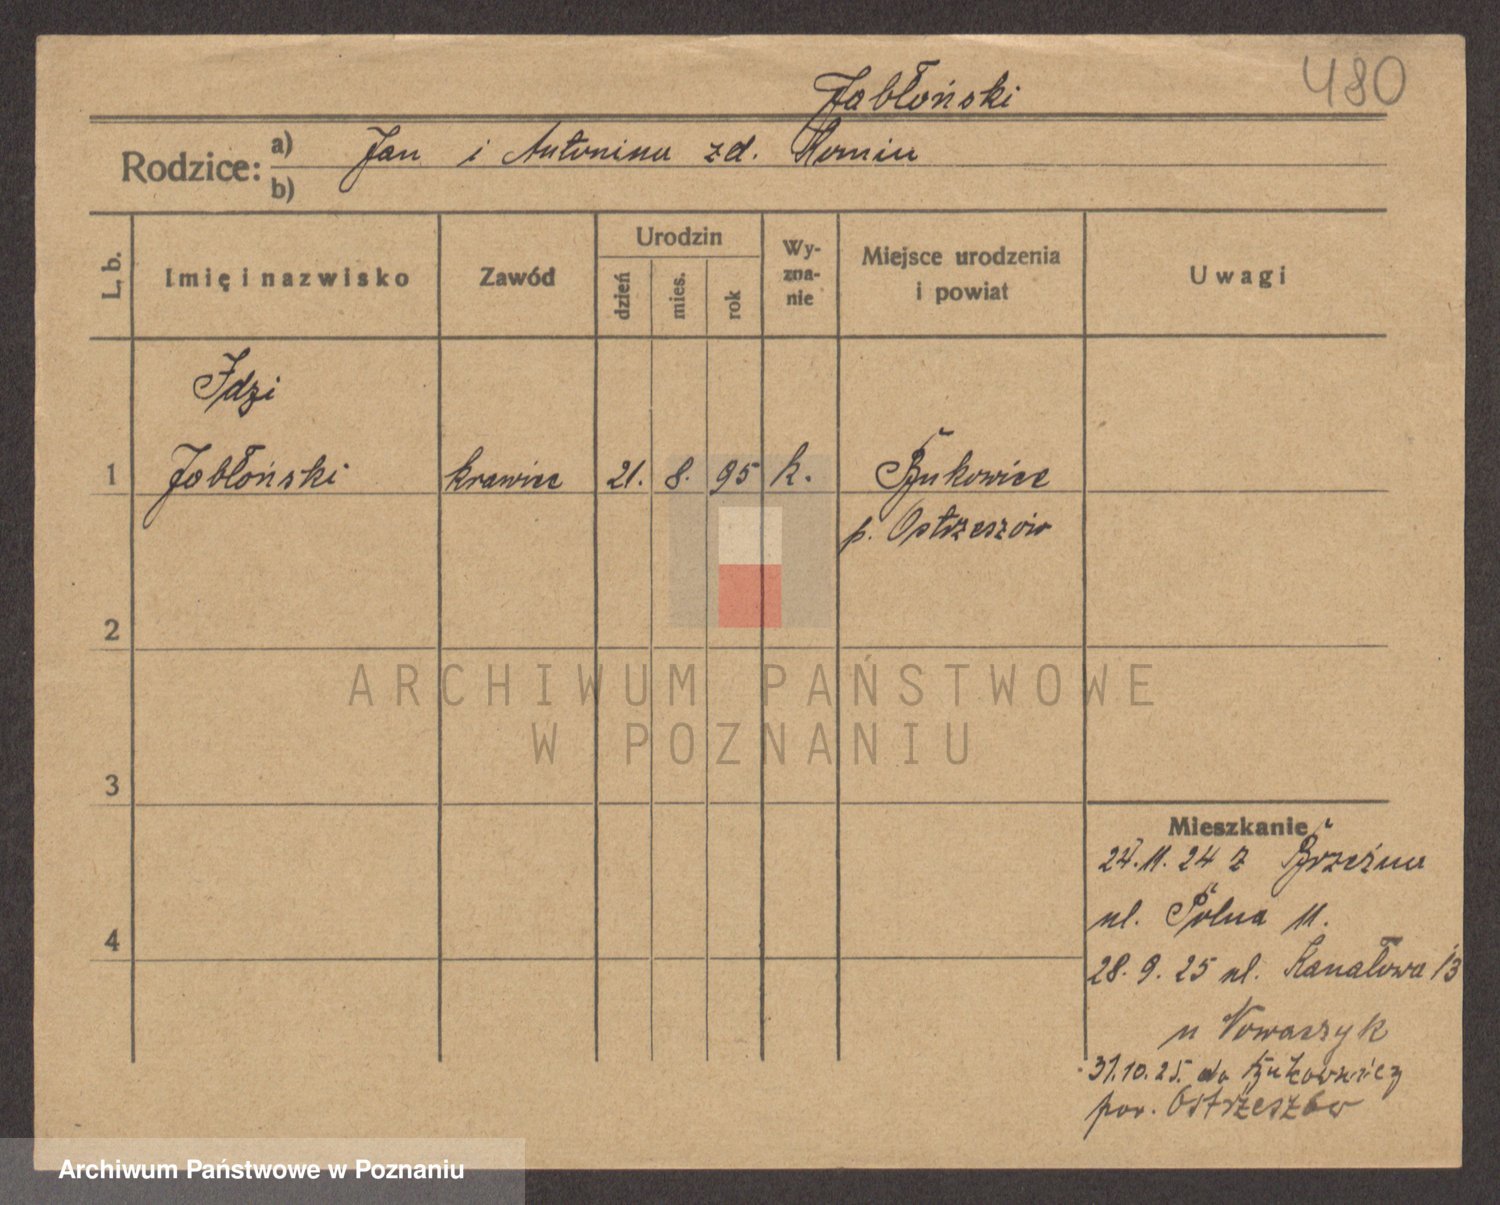 480
Jabłoński
Rodzice: a) Jan i Antonina zd.
b)
L. b.
Imię i nazwisko
Zawód
Urodzin
dzień
mies.
rok
Wy-
zna-
nie
Miejsce urodzenia
i powiat
Uwagi
Idzi
1 Jabłoński krawiec 21. 8. 95 k. Bukowiec
p. Ostrzeszów
2
3
4
Mieszkanie
24. 11. 24 z
ul. Polna 11.
28. 9. 25 ul. Kanałowa 13
u Nowaszyk
31. 10. 25. do Bukowiec
pow. Ostrzeszów
ARCHIWUM PAŃSTWOWE
W POZNANIU
Archiwum Państwowe w Poznaniu